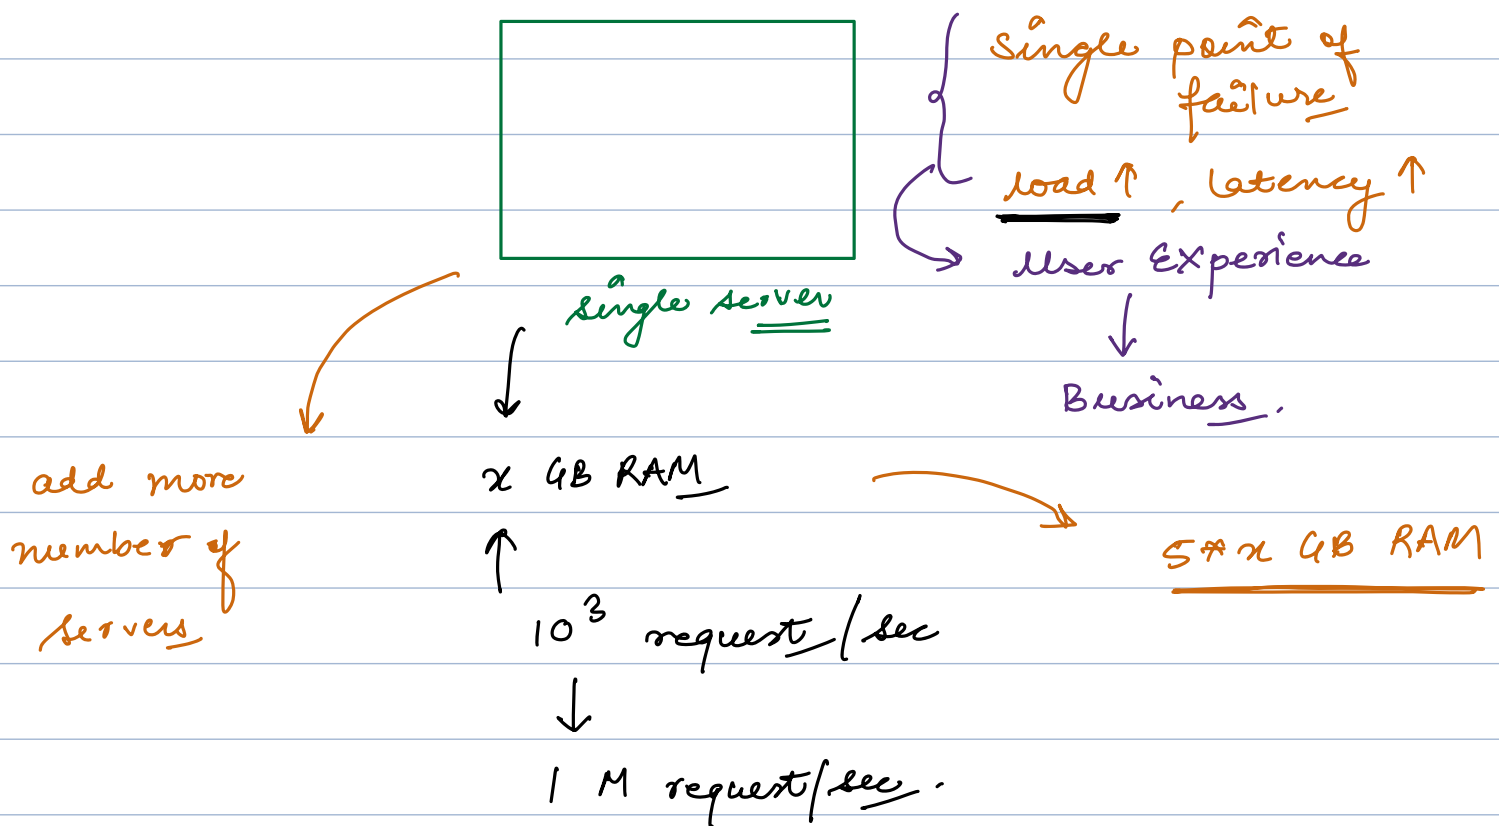 single point of
failure
load ↑ , latency ↑
User Experience
single server
Business.
add more
number of
servers
x GB RAM
5*x GB RAM
10³ request/sec
1 M request/sec.